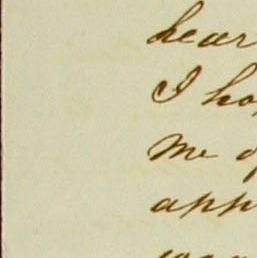 hear
I ho
me o
app